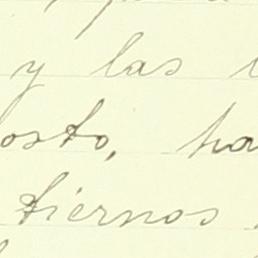 y las
osto, ha
tiernos